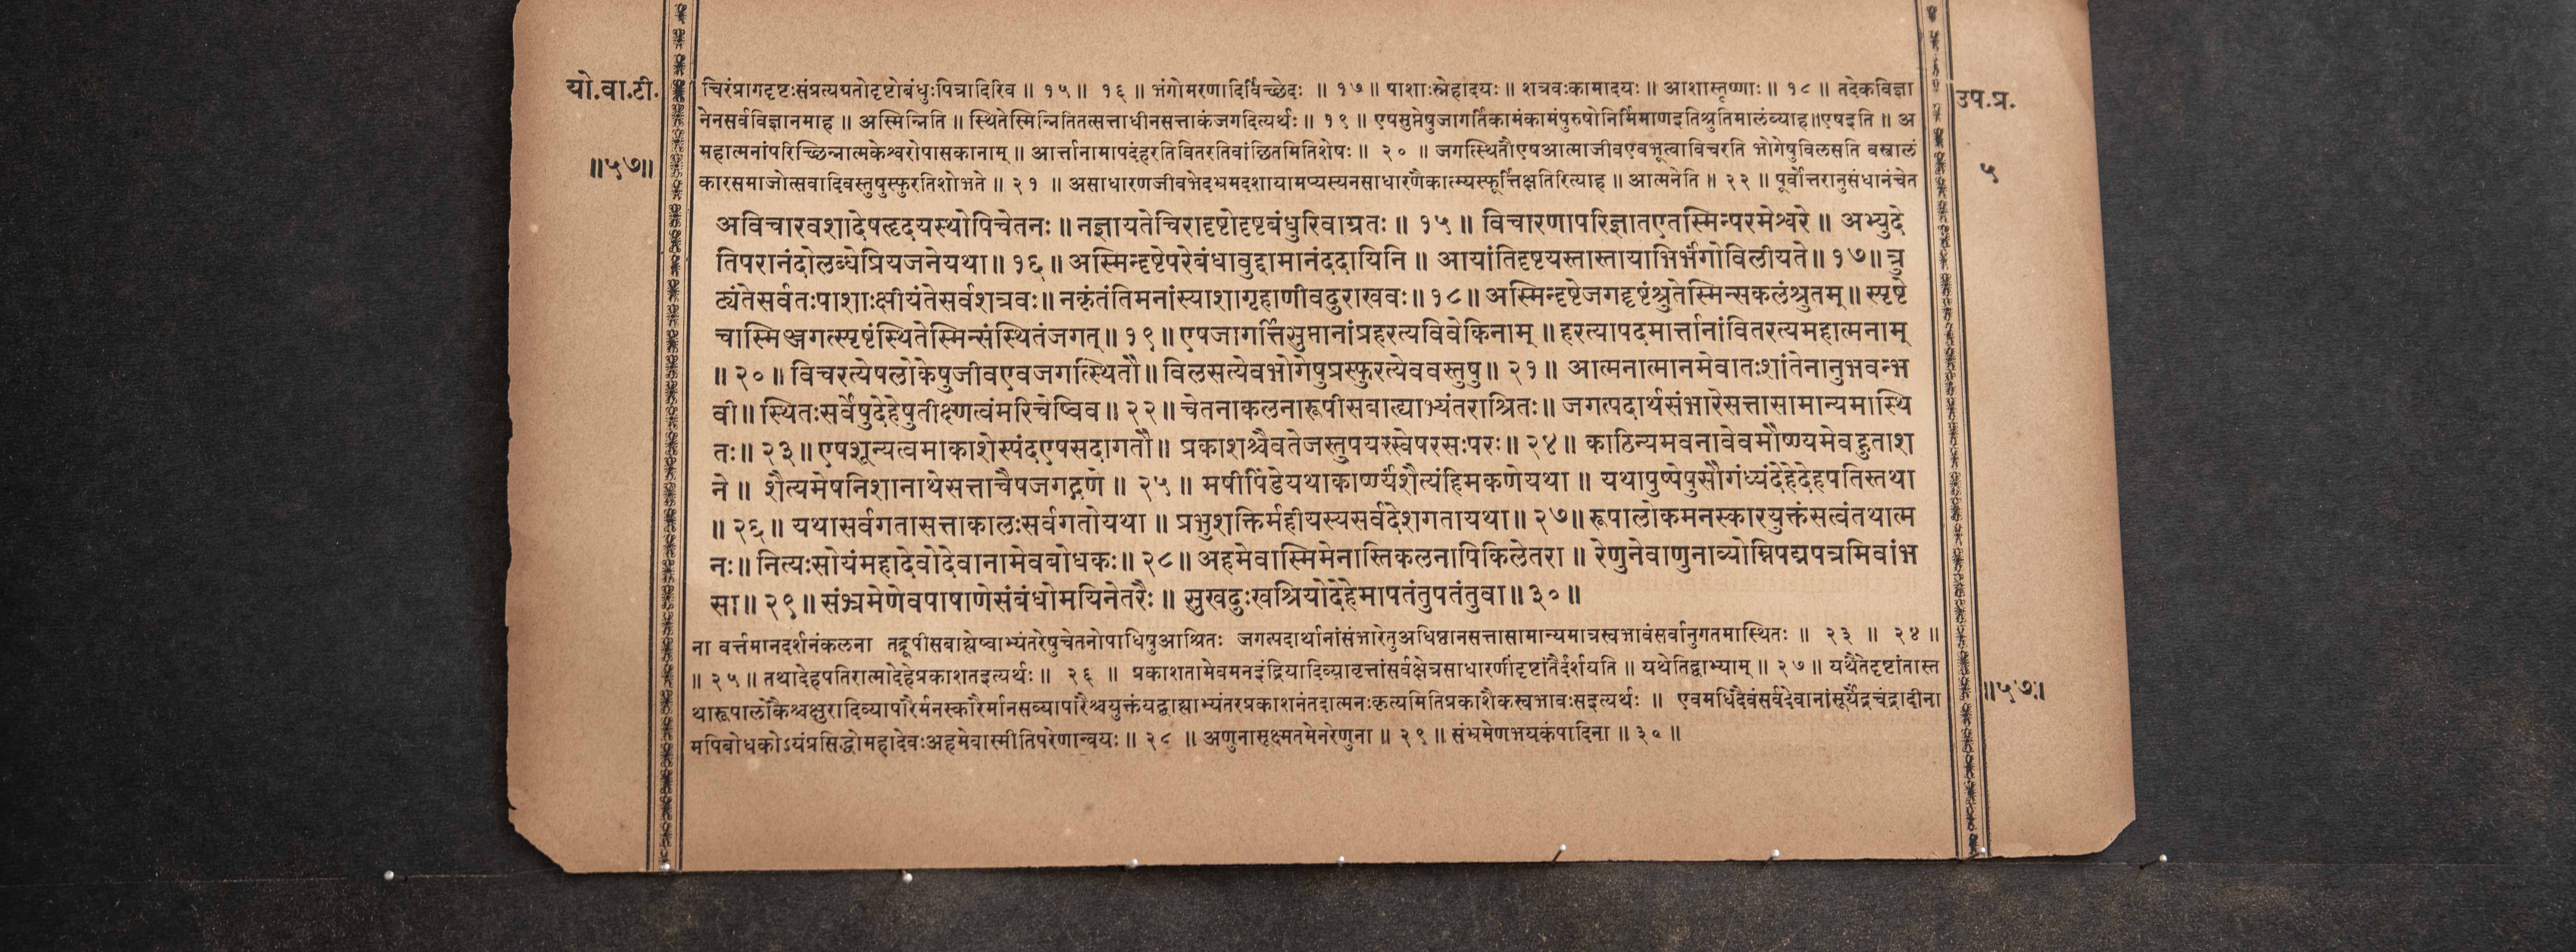 यो.वा.टी.
॥५७॥
चिरंप्रागदृष्टःसंप्रत्यग्रतोदृष्टोबंधुःपित्रादिरिव ॥ १५ ॥ १६ ॥ भंगोमरणादिर्विच्छेदः ॥ १७ ॥ पाशाःस्नेहादयः ॥ शत्रवःकामादयः ॥ आशास्तृष्णाः ॥ १८ ॥ तदेकविज्ञा
नेनसर्वविज्ञानमाह ॥ अस्मिन्निति ॥ स्थितेस्मिन्नितितत्सत्ताधीनसत्ताकंजगदित्यर्थः ॥ १९ ॥ एषसुप्तेषुजागर्तिकामंकामंपुरुषोनिर्मिमाणइतिश्रुतिमालंब्याह॥एषइति ॥ अ
महात्मनांपरिच्छिन्नात्मकेश्वरोपासकानाम् ॥ आर्त्तानामापदंहरतिवितरतिवांछितमितिशेषः ॥ २० ॥ जगत्स्थितौएषआत्माजीवएवभूत्वाविचरति भोगेषुविलसति वस्त्रालं
कारसमाजोत्सवादिवस्तुषुस्फुरतिशोभते ॥ २१ ॥ असाधारणजीवभेदभ्रमदशायामप्यस्यनसाधारणैकात्म्यस्फूर्त्तिक्षतिरित्याह ॥ आत्मनेति ॥ २२ ॥ पूर्वोत्तरानुसंधानंचेत
अविचारवशादेषहृदयस्थोपिचेतनः ॥ नज्ञायतेचिरादृष्टोदृष्टबंधुरिवाग्रतः ॥ १५ ॥ विचारणापरिज्ञातएतस्मिन्परमेश्वरे ॥ अभ्युदे
तिपरानंदोलब्धेप्रियजनेयथा ॥ १६ ॥ अस्मिन्दृष्टेपरेबंधावुद्दामानंददायिनि ॥ आयांतिदृष्टयस्तास्तायाभिर्भंगोविलीयते ॥ १७ ॥ त्रु
ट्यंतेसर्वतःपाशाःक्षीयंतेसर्वशत्रवः ॥ नकृंतंतिमनांस्याशागृहाणीवदुराखवः ॥ १८ ॥ अस्मिन्दृष्टेजगद्दृष्टंश्रुतेस्मिन्सकलंश्रुतम् ॥ स्पृष्टे
चास्मिञ्जगत्स्पृष्टंस्थितेस्मिन्संस्थितंजगत् ॥ १९ ॥ एषजागर्त्तिसुप्तानांप्रहरत्यविवेकिनाम् ॥ हरत्यापदमार्त्तानांवितरत्यमहात्मनाम्
॥ २० ॥ विचरत्येषलोकेषुजीवएवजगत्स्थितौ ॥ विलसत्येवभोगेषुप्रस्फुरत्येववस्तुषु ॥ २१ ॥ आत्मनात्मानमेवातःशांतेनानुभवन्भ
वी ॥ स्थितःसर्वेषुदेहेषुतीक्ष्णत्वंमरिचेष्विव ॥ २२ ॥ चेतनाकलनारूपीसबाह्याभ्यंतराश्रितः ॥ जगत्पदार्थसंभारेसत्तासामान्यमास्थि
तः ॥ २३ ॥ एषशून्यत्वमाकाशेस्पंदएषसदागतौ ॥ प्रकाशश्चैवतेजस्तुपयस्स्वेषरसःपरः ॥ २४ ॥ काठिन्यमवनावेवमौष्ण्यमेवहुताश
ने ॥ शैत्यमेषनिशानाथेसत्ताचैषजगद्गणे ॥ २५ ॥ मषीपिंडेयथाकार्ष्ण्यंशैत्यंहिमकणेयथा ॥ यथापुष्पेषुसौगंध्यंदेहेदेहपतिस्तथा
॥ २६ ॥ यथासर्वगतासत्ताकालःसर्वगतोयथा ॥ प्रभुशक्तिर्महीयस्यसर्वदेशगतायथा ॥ २७ ॥ रूपालोकमनस्कारयुक्तंसत्वंतथात्म
नः ॥ नित्यःसोयंमहादेवोदेवानामेवबोधकः ॥ २८ ॥ अहमेवास्मिमेनास्तिकलनापिकिलेतरा ॥ रेणुनेवाणुनाव्योम्निपद्मपत्रमिवांभ
सा ॥ २९ ॥ संभ्रमेणेवपाषाणेसंबंधोमयिनेतरैः ॥ सुखदुःखश्रियोदेहेमापतंतुपतंतुवा ॥ ३० ॥
ना वर्त्तमानदर्शनंकलना तद्रूपीसबाह्येष्वाभ्यंतरेषुचेतनोपाधिषुआश्रितः जगत्पदार्थानांसंभारेतुअधिष्ठानसत्तासामान्यमात्रस्वभावंसर्वानुगतमास्थितः ॥ २३ ॥ २४ ॥
॥ २५ ॥ तथादेहपतिरात्मादेहेप्रकाशतइत्यर्थः ॥ २६ ॥ प्रकाशतामेवमनइंद्रियादिव्यावृत्तांसर्वक्षेत्रसाधारणींदृष्टांतैर्दर्शयति ॥ यथेतिद्वाभ्याम् ॥ २७ ॥ यथैतेदृष्टांतास्त
थारूपालोकैश्चक्षुरादिव्यापारैर्मनस्कारैर्मानसव्यापारैश्चयुक्तंयद्बाह्याभ्यंतरप्रकाशनंतदात्मनःकृत्यमितिप्रकाशैकस्वभावःसइत्यर्थः ॥ एवमधिदैवंसर्वदेवानांसूर्येंद्रचंद्रादीना
मपिबोधकोऽयंप्रसिद्धोमहादेवःअहमेवास्मीतिपरेणान्वयः ॥ २८ ॥ अणुनासूक्ष्मतमेनरेणुना ॥ २९ ॥ संभ्रमेणभयकंपादिना ॥ ३० ॥
उप.प्र.
५
॥५७॥